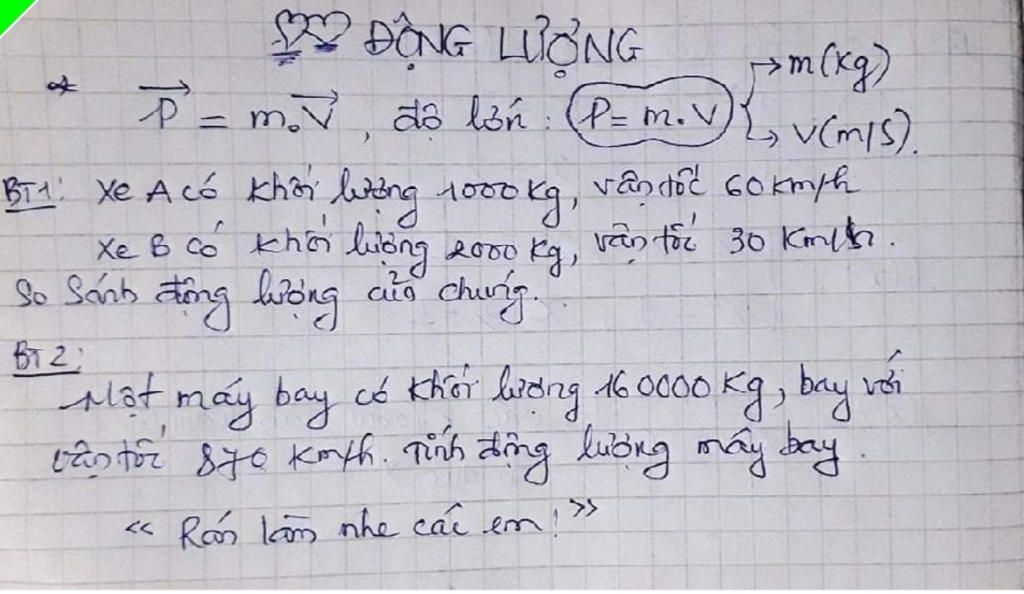 ĐỘNG LƯỢNG
* P = m.V, độ lớn: P = m.V → m(kg)
→ V(m/s).
BT1: Xe A có khối lượng 1000kg, vận tốc 60 km/h
Xe B có khối lượng 2000kg, vận tốc 30 Km/h.
So Sánh động lượng của chúng.
BT2:
Một máy bay có khối lượng 160000 Kg, bay với
vận tốc 870 Km/h. Tính động lượng máy bay.
<< Rán làm nhe các em! >>